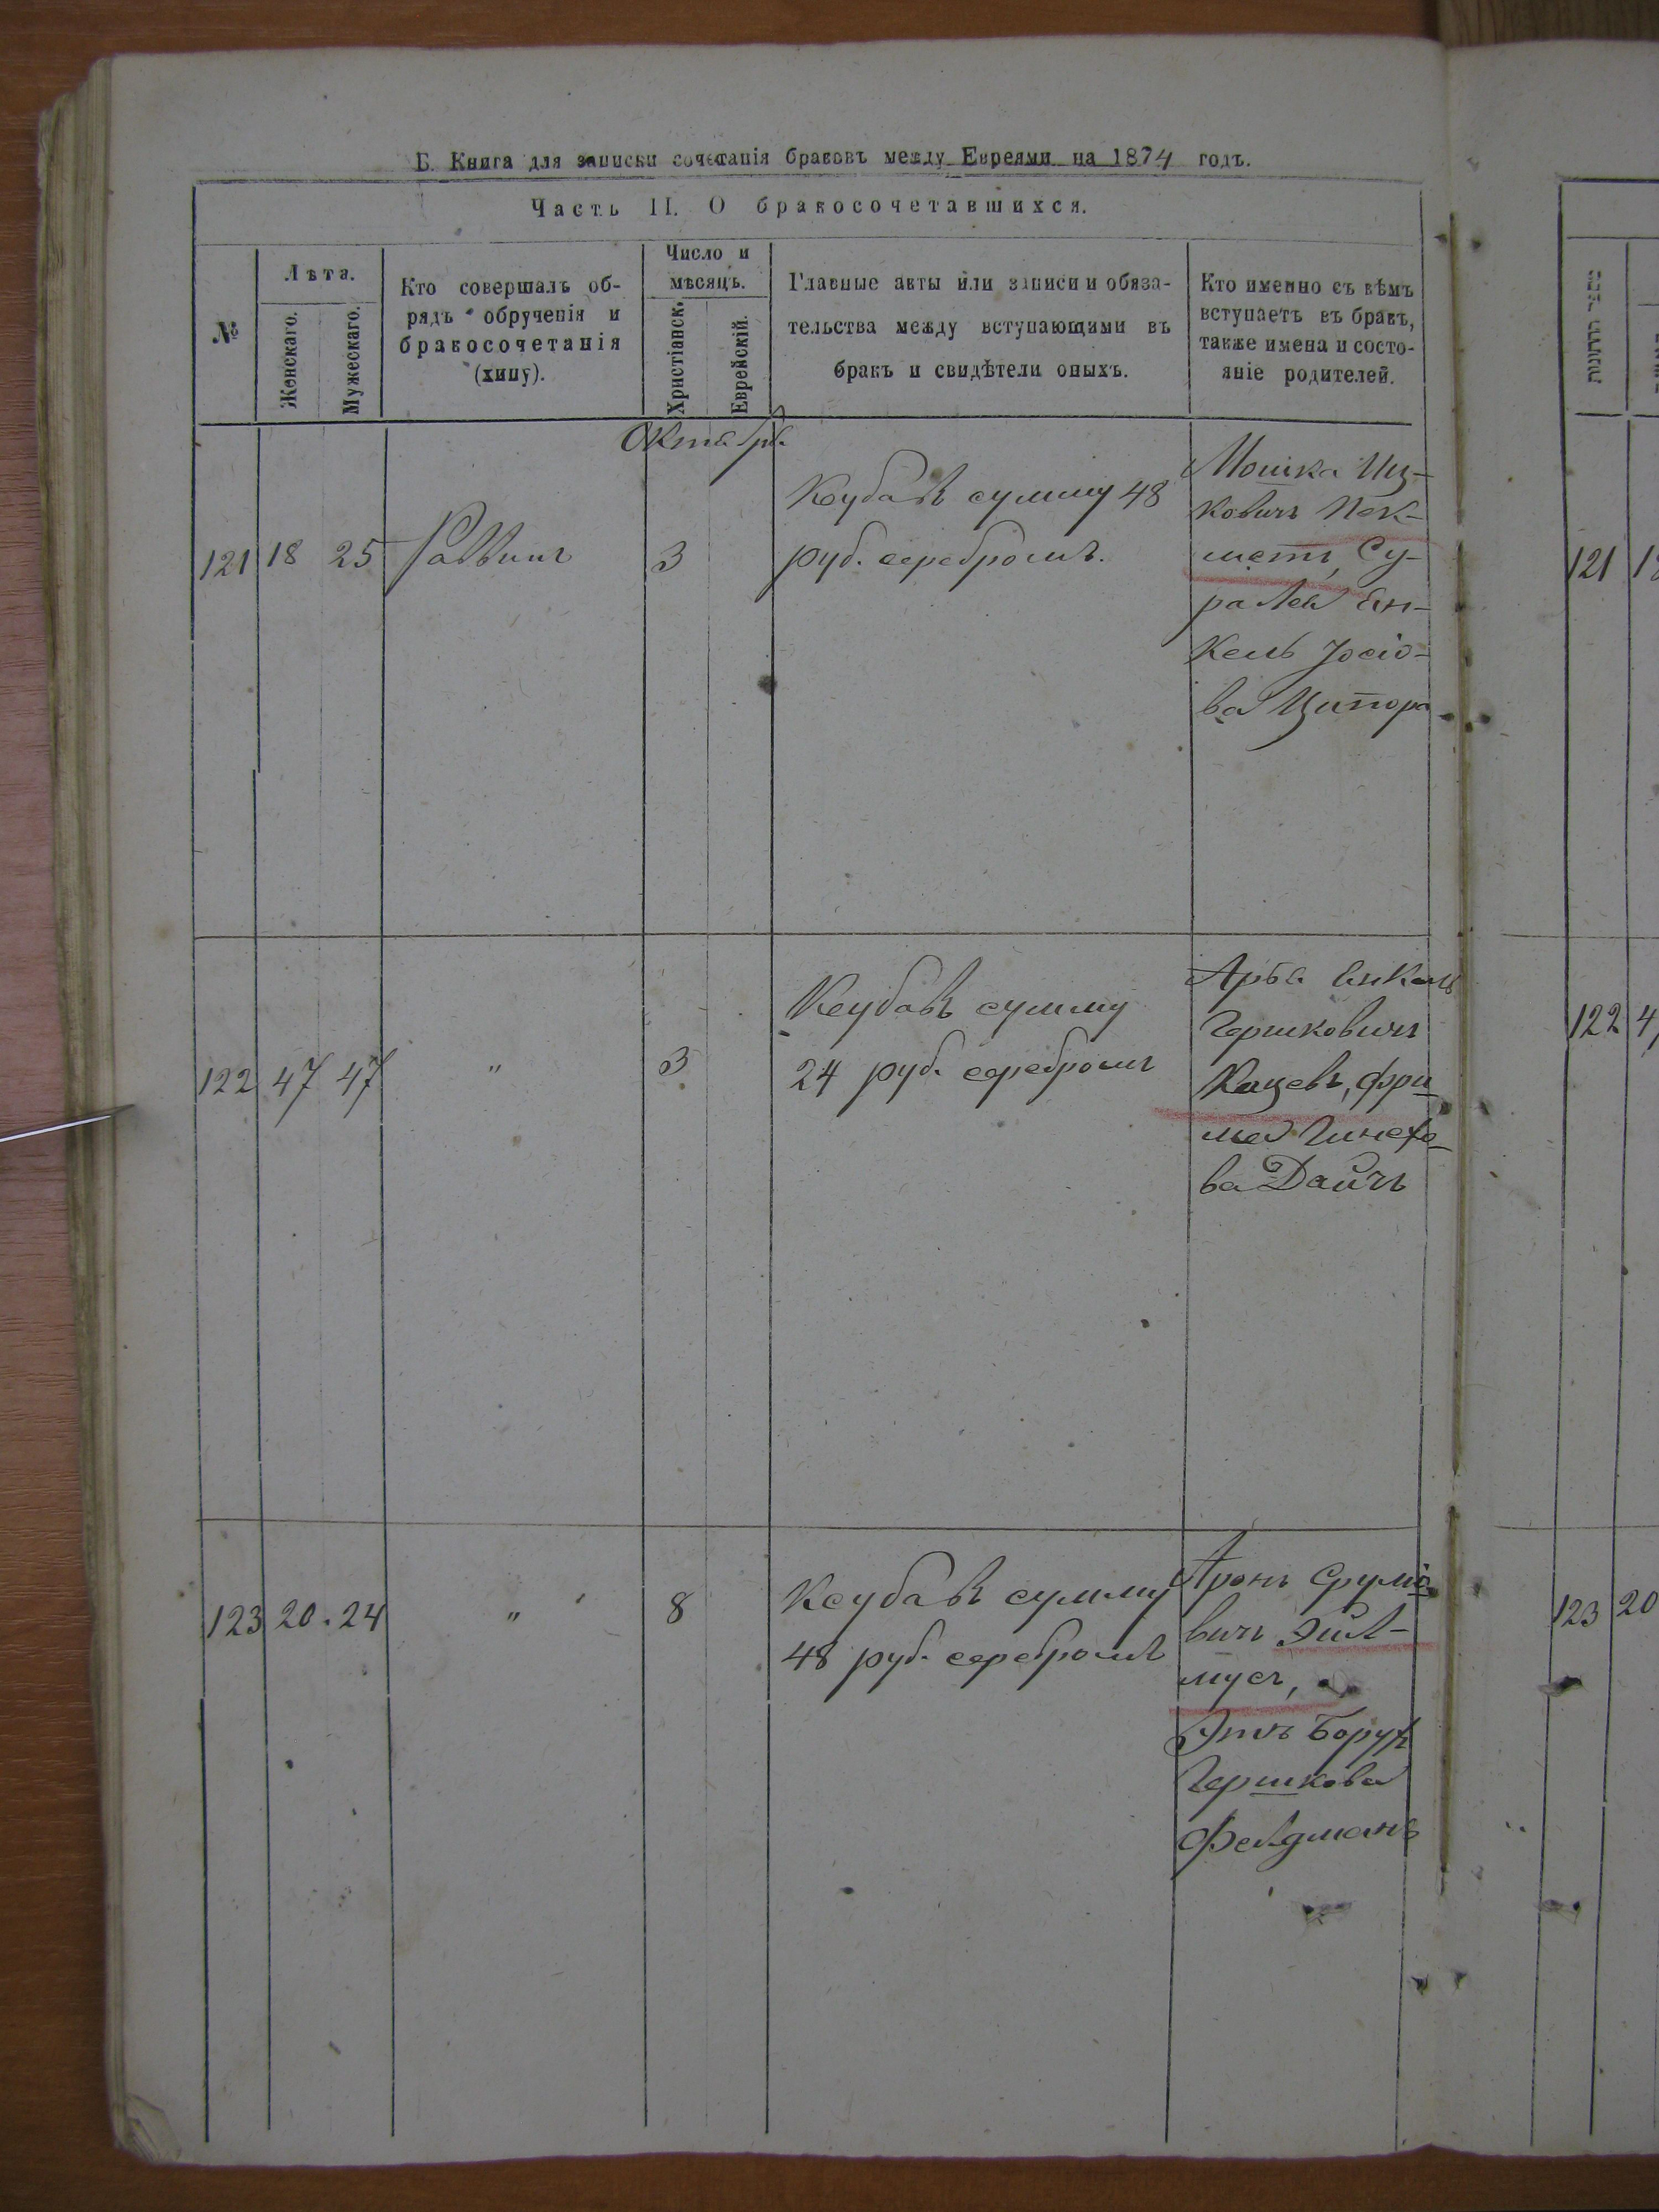 Б. Книга для записки сочетанія браковъ между Евреями на 1874 годъ.
Часть II. О бракосочетавшихся.
№
Лѣта.
Женскаго.
Мужескаго.
Кто совершалъ об-
рядъ обрученія и
бракосочетанія
(хипу).
Число и
мѣсяцъ.
Христіанск.
Еврейскій.
Главные акты или записи и обяза-
тельства между вступающими въ
бракъ и свидѣтели оныхъ.
Кто именно съ кѣмъ
вступаетъ въ бракъ,
также имена и состо-
яніе родителей.
Октября
121 18 25 Раввинъ 3
Ксубавъ сумму 48
руб. серебромъ.
Мошка Иц-
ковичъ Пек-
метъ, Су-
ра Лея Ян-
кель Іосіо-
ва Ципора
122 47 47 " 3
Ксубавъ сумму
24 руб. серебромъ
Арья Янкель
Гершковичъ
Кацевъ, Фри-
ма
ва Дайчъ
123 20 . 24 " 8
Ксубавъ сумму
48 руб. серебромъ
Аронъ Срумо
вичъ Эйл-
мусъ,
Борух
Гершкова
Фелдманъ
ספר החתונות
121
122
123 20